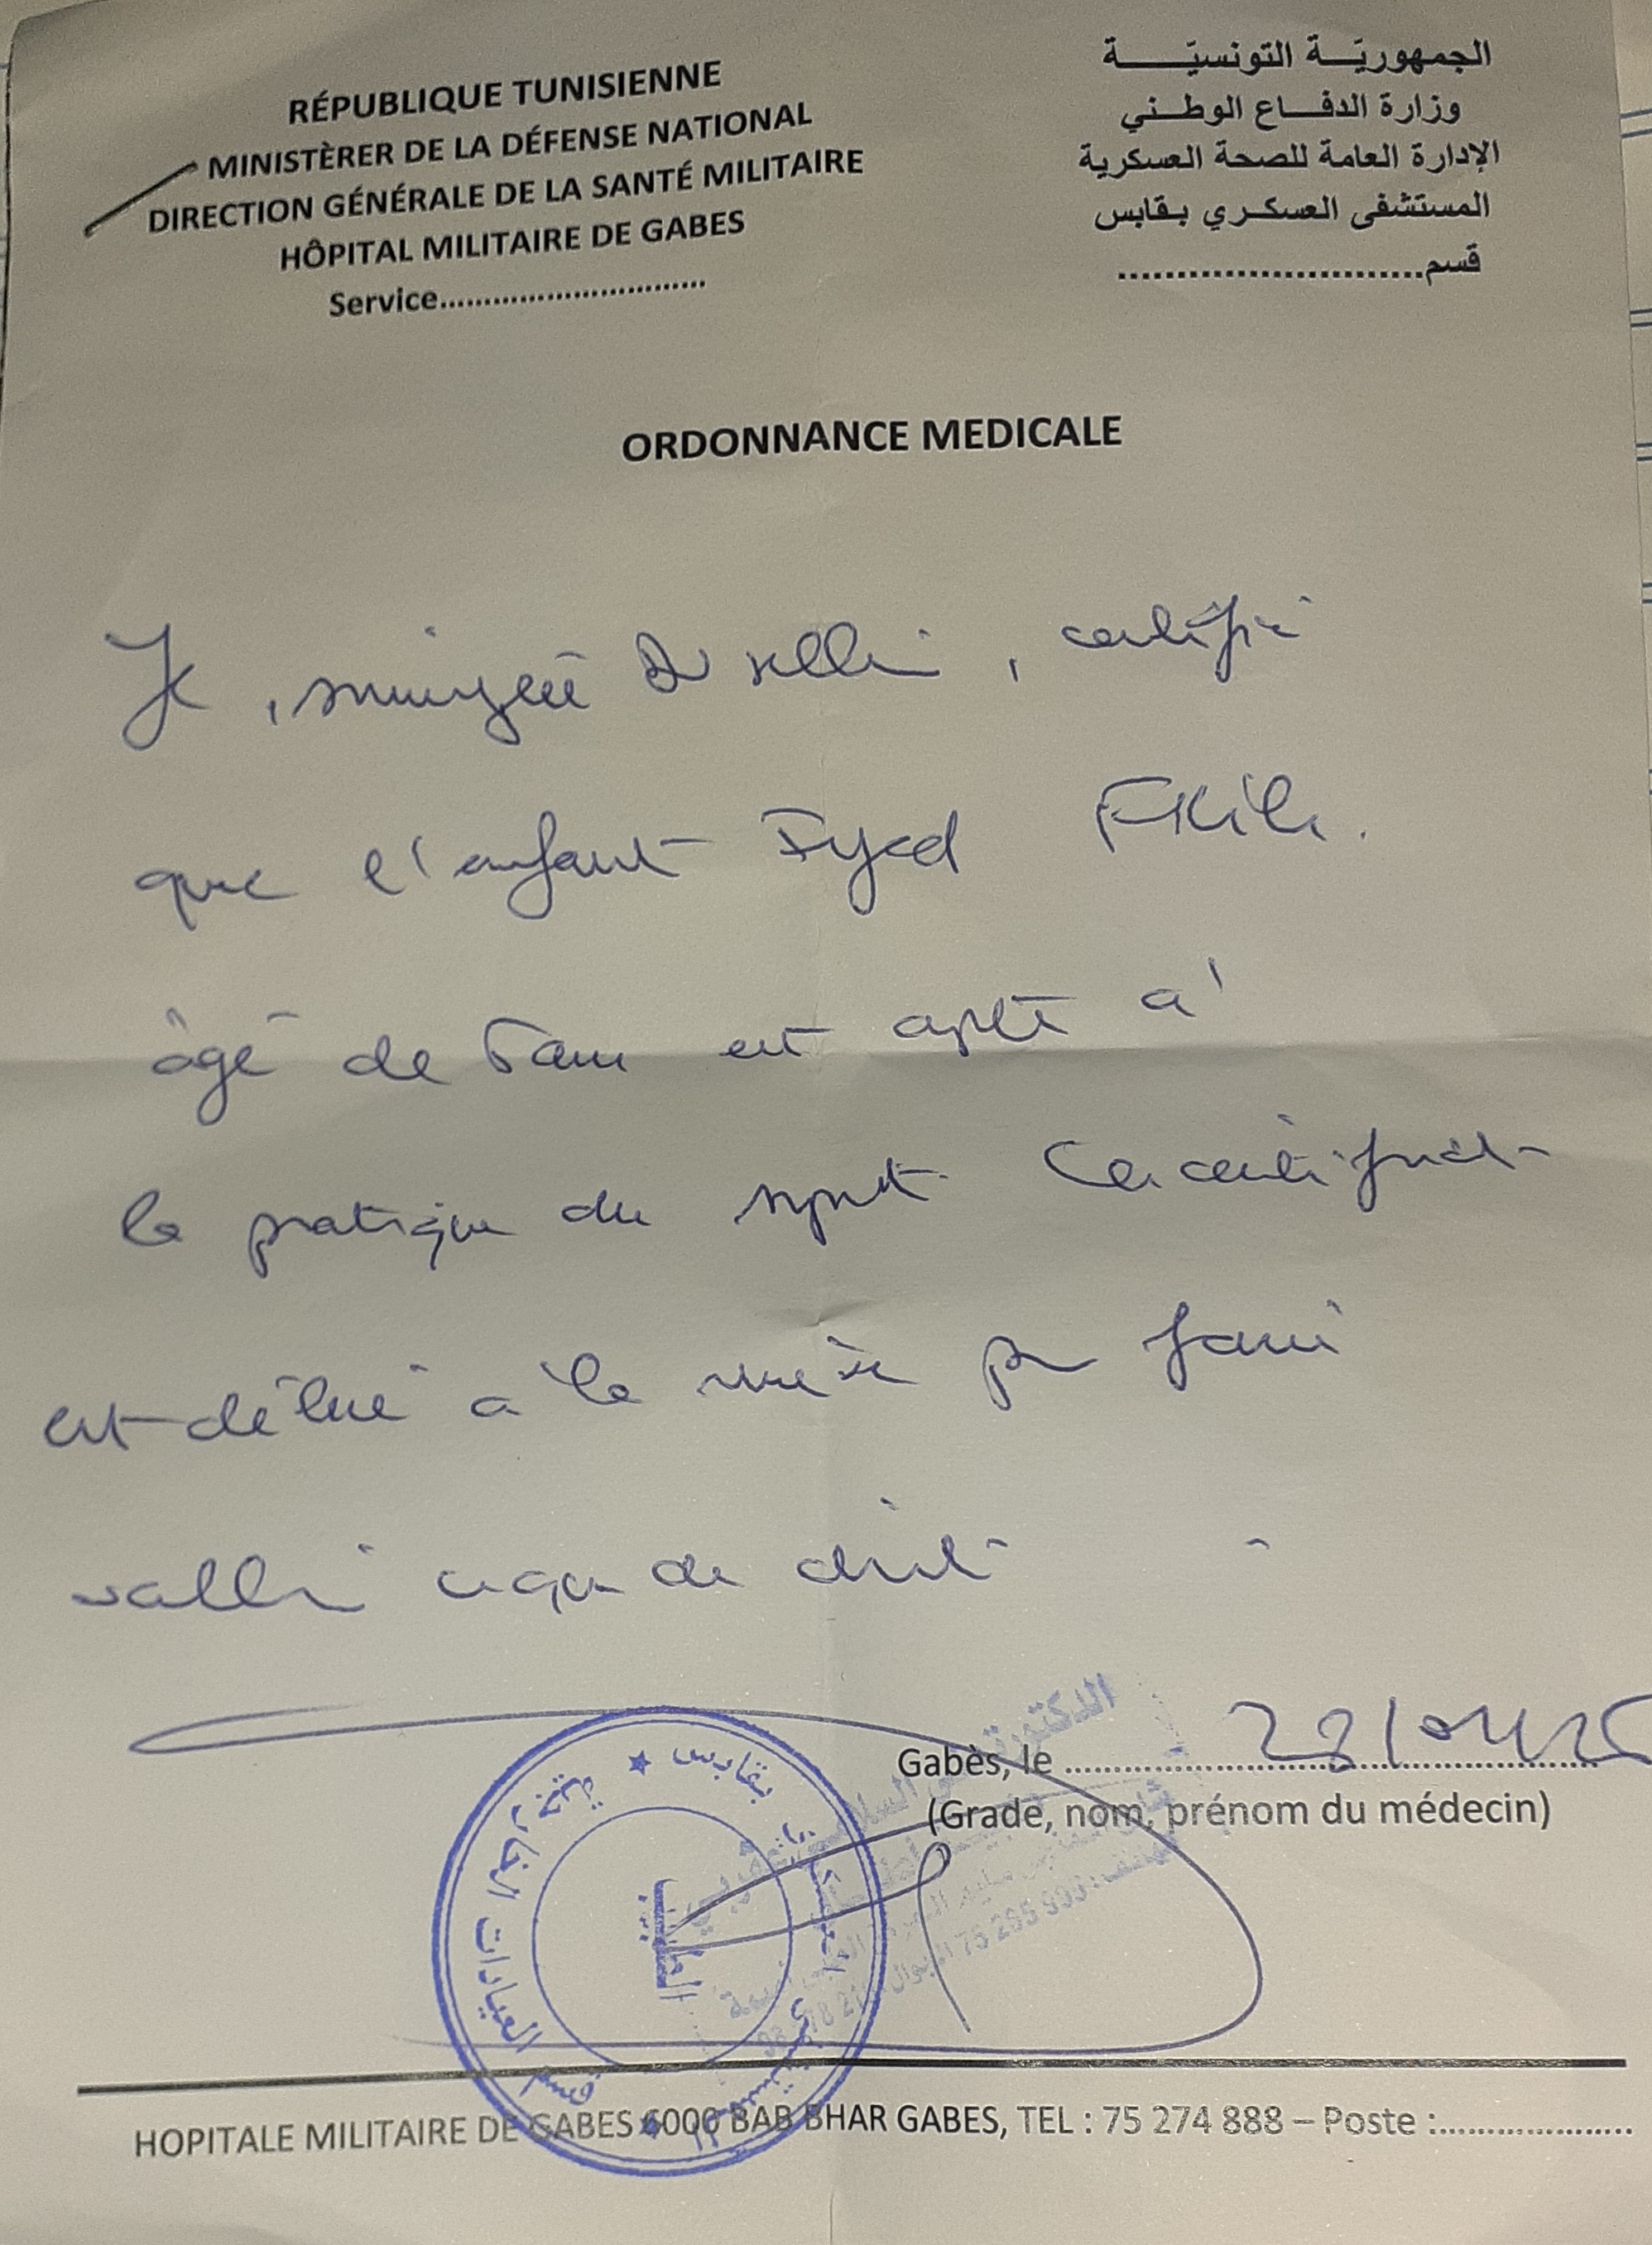 RÉPUBLIQUE TUNISIENNE
MINISTÈRER DE LA DÉFENSE NATIONAL
DIRECTION GÉNÉRALE DE LA SANTÉ MILITAIRE
HÔPITAL MILITAIRE DE GABES
Service..............................
الجمهوريّة التونسيّة
وزارة الدفاع الوطني
الإدارة العامة للصحة العسكرية
المستشفى العسكري بقابس
قسم..........................
ORDONNANCE MEDICALE
Je, soussigné Dr, certifie
que l'enfant Eyed
âgé de ans est apte à
la pratique du sport. Ce certificat
est délivré à la mère pr faire
valoir ce que de droit
Gabès, le
(Grade, nom, prénom du médecin)
قسم العيادات الخارجية
المستشفى العسكري بقابس
الطبيب
HOPITALE MILITAIRE DE GABES 6000 BAB BHAR GABES, TEL : 75 274 888 – Poste :.....................